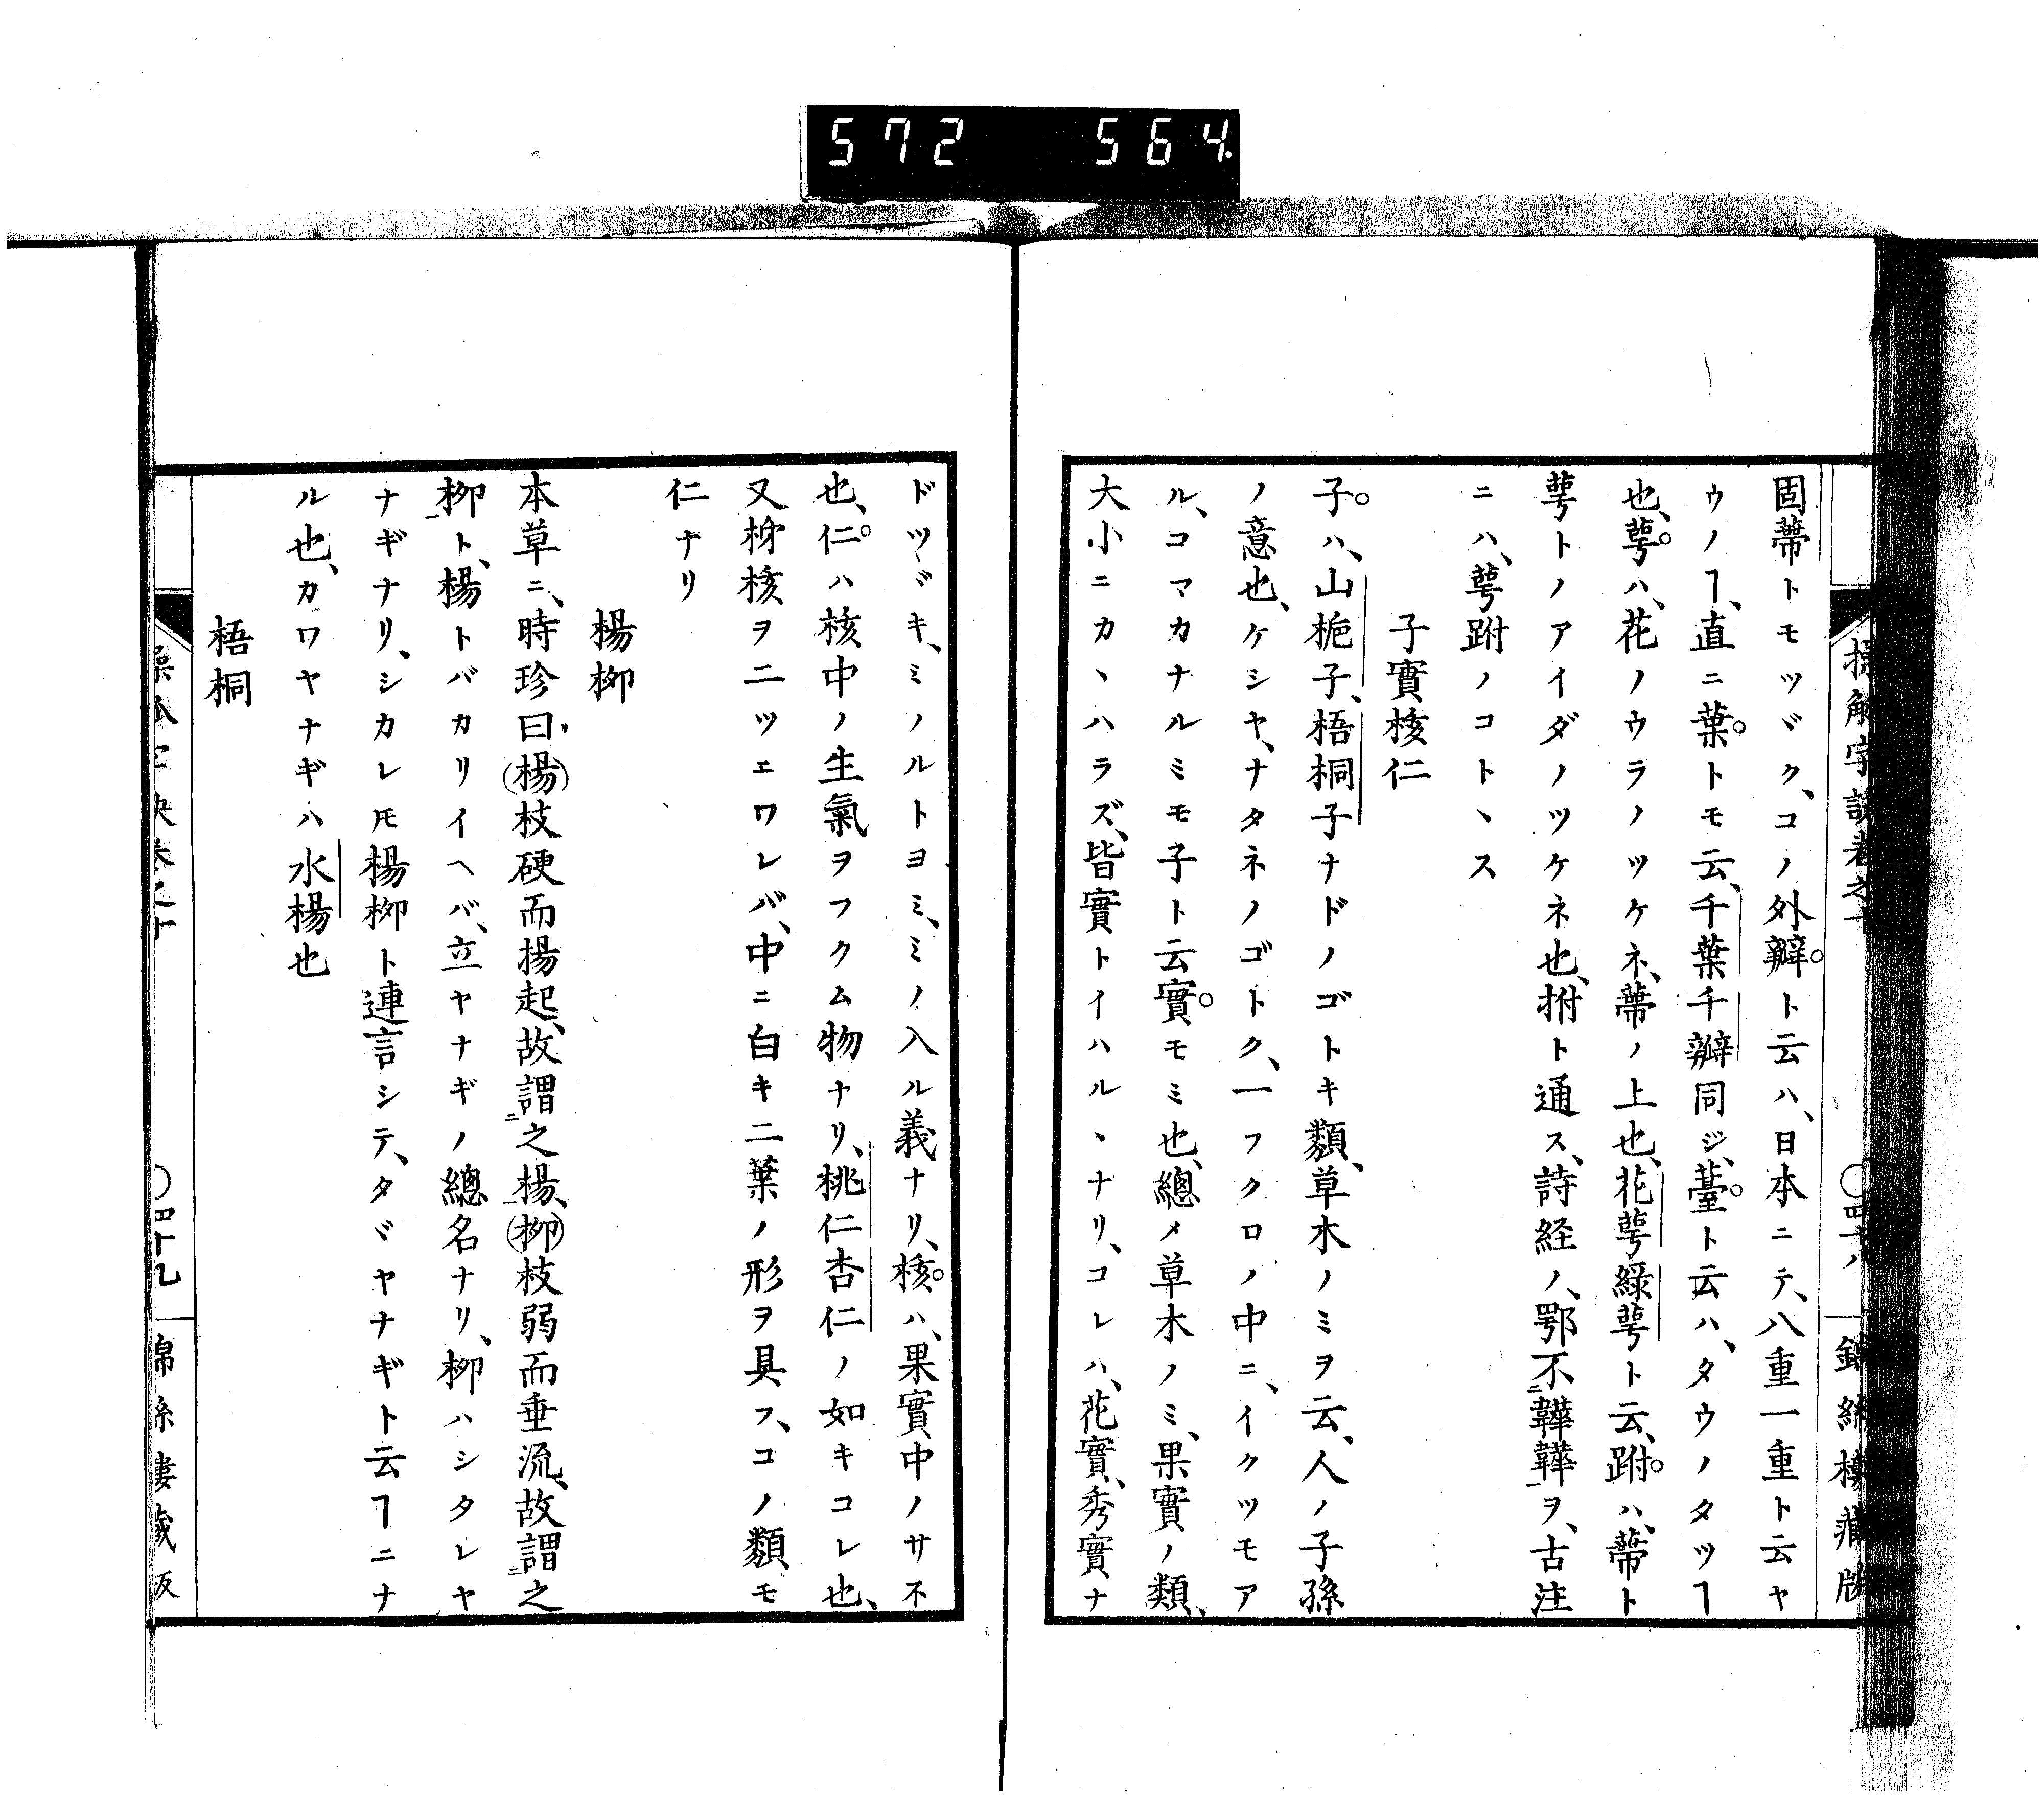 572 564
固蔕トモツヾク、コノ外瓣ト云ハ、日本ニテ、八重一重ト云ヤ
ウノヿ、直ニ葉トモ云、千葉千瓣同ジ、薹ト云ハ、タウノタツヿ
也、萼ハ、花ノウラノツケネ、蔕ノ上也、花萼緑萼ト云、跗ハ、蔕ト
萼トノアイダノツケネ也、拊ト通ス、詩経ノ、鄂不韡韡ヲ、古注
ニハ、萼跗ノコトヽス
子實核仁
子ハ、山梔子、梧桐子ナドノゴトキ類、草木ノミヲ云、人ノ子孫
ノ意也、ケシヤ、ナタネノゴトク、一フクロノ中ニ、イクツモア
ル、コマカナルミモ子ト云實モミ也、總メ草木ノミ、果實ノ類、
大小ニカヽハラズ、皆實トイハルヽナリ、コレハ、花實、秀實ナ
ドツヾキ、ミノルトヨミ、ミノ入ル義ナリ、核ハ、果實中ノサネ
也、仁ハ核中ノ生氣ヲフクム物ナリ、桃仁杏仁ノ如キコレ也、
又梅核ヲ二ツニワレバ、中ニ白キ二葉ノ形ヲ具フ、コノ類モ
仁ナリ
楊柳
本草ニ、時珍曰、楊枝硬而揚起、故謂之楊、柳枝弱而垂流、故謂之
柳ト、楊トバカリイヘバ、立ヤナギノ總名ナリ、柳ハシタレヤ
ナギナリ、シカレ𪜈楊柳ト連言シテ、タヾヤナギト云ヿニナ
ル也、カワヤナギハ水楊也
梧桐